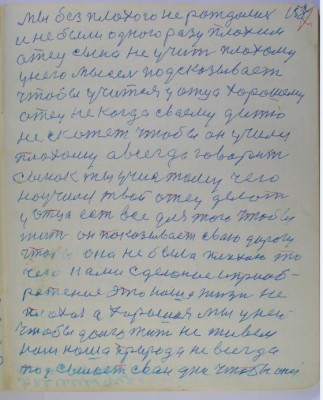 мы без плохого не рождались
и не были одного разу плохим
отец сына не учит плохому
у него мысел подсказывает
чтобы учится у отца хорошому
отец не когда сваему дитю
не скажет чтобы он учили
плохому а всегда говорит
сынок ты учис тому чего
научили твой отец делат
у отца ест все для того чтобы
жит он показывает сваю дорогу
чтобы она не была плохою то
чего нами сделоное
ретение это наша жизн не
плохая а хорошая мы у ней
чтобы долго жит не живем
нам наша природа не всегда
свои дни чтобы они